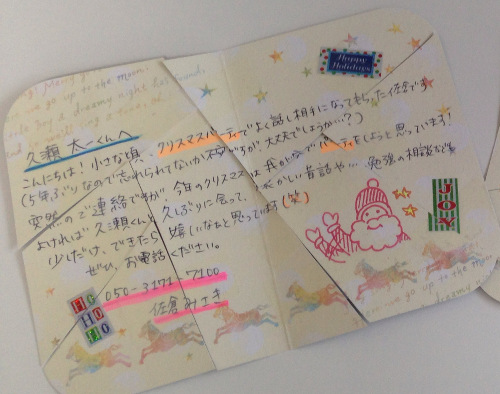 Happy
Holidays
久瀬 太一くんへ
こんにちは! 小さな頃、クリスマスパーティでよく話し相手になってもらった佐倉です
(5年ぶりなので忘れられてないか不安ですが、大丈夫でしょうか…?)
突然のご連絡ですが、今年のクリスマスは我が家でパーティをしようと思っています!
よければ久瀬くんと久しぶりに会って、懐かしい昔話や…、勉強の相談など
少しだけ、できたら嬉しいなぁと思っています(笑)
ぜひ、お電話ください。
050-3171-7100
佐倉 みさき
HO
HO
HO
JOY
go up to the moon.